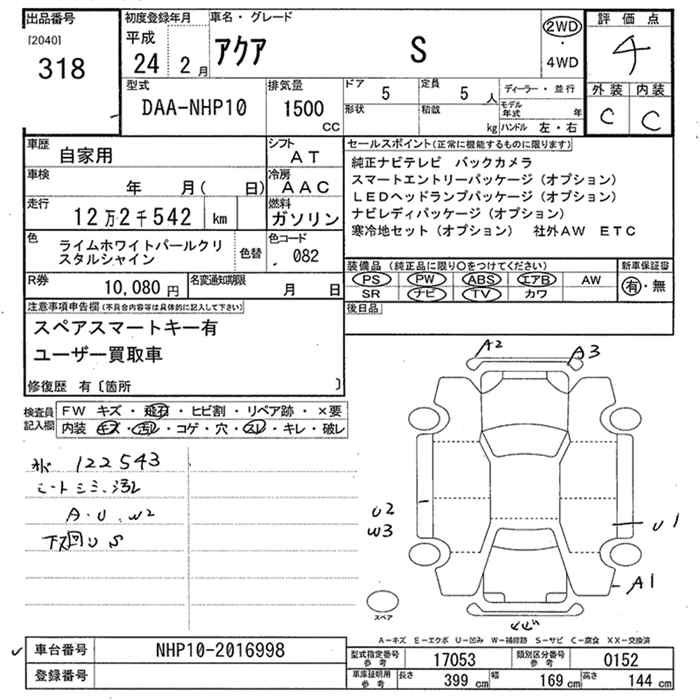 出品番号
[2040]
318
初度登録年月
平成
24 2 月
車名・グレード
アクア S
2WD
・
4WD
評価点
4
外装 内装
C C
型式
DAA-NHP10
排気量
1500
CC
ドア
5
定員
5 人
形状
積載
kg
ディーラー・並行
モデル年式 年
ハンドル 左・右
車歴
自家用
シフト
AT
車検
年 月( 日)
冷房
AAC
走行
12万2千542 km
燃料
ガソリン
色
ライムホワイトパールクリスタルシャイン
色替
色コード
082
R券
10,080 円
名変通知期限
月 日
セールスポイント(正常に機能するものに限ります)
純正ナビテレビ バックカメラ
スマートエントリーパッケージ(オプション)
LEDヘッドランプパッケージ(オプション)
ナビレディパッケージ(オプション)
寒冷地セット(オプション) 社外AW ETC
装備品(純正品に限り○をつけてください)
PS PW ABS エアB AW
SR ナビ TV カワ
新車保証書
有・無
後日品
注意事項申告欄(不具合内容等は具体的に記入して下さい)
スペアスマートキー有
ユーザー買取車
修復歴 有〔箇所 〕
検査員記入欄
FW キズ・飛石・ヒビ割・リペア跡・×要
内装 キズ・汚レ・コゲ・穴・スレ・キレ・破レ
122543
シートシミ、汚レ
A・U、W2
下回り S
A2
A3
U2
W3
U1
A1
スペア
A-キズ E-エクボ U-凹み W-補修跡 S-サビ C-腐食 XX-交換済
車台番号
NHP10-2016998
登録番号
型式指定番号
参考
17053
類別区分番号
参考
0152
車庫証明用
参考
長さ
399 cm
幅
169 cm
高さ
144 cm